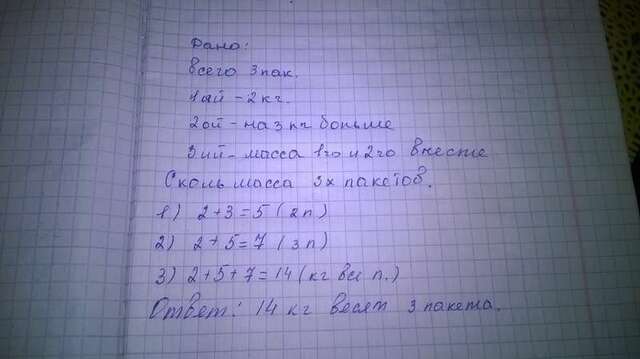 Дано:
всего 3 пак.
1ый - 2 кг.
2ой - на 3 кг больше
3ий - масса 1го и 2го вместе
Сколь масса 3х пакетов.
1) 2+3=5 (2п)
2) 2+5=7 (3п)
3) 2+5+7=14 (кг все п.)
Ответ: 14 кг весят 3 пакета.